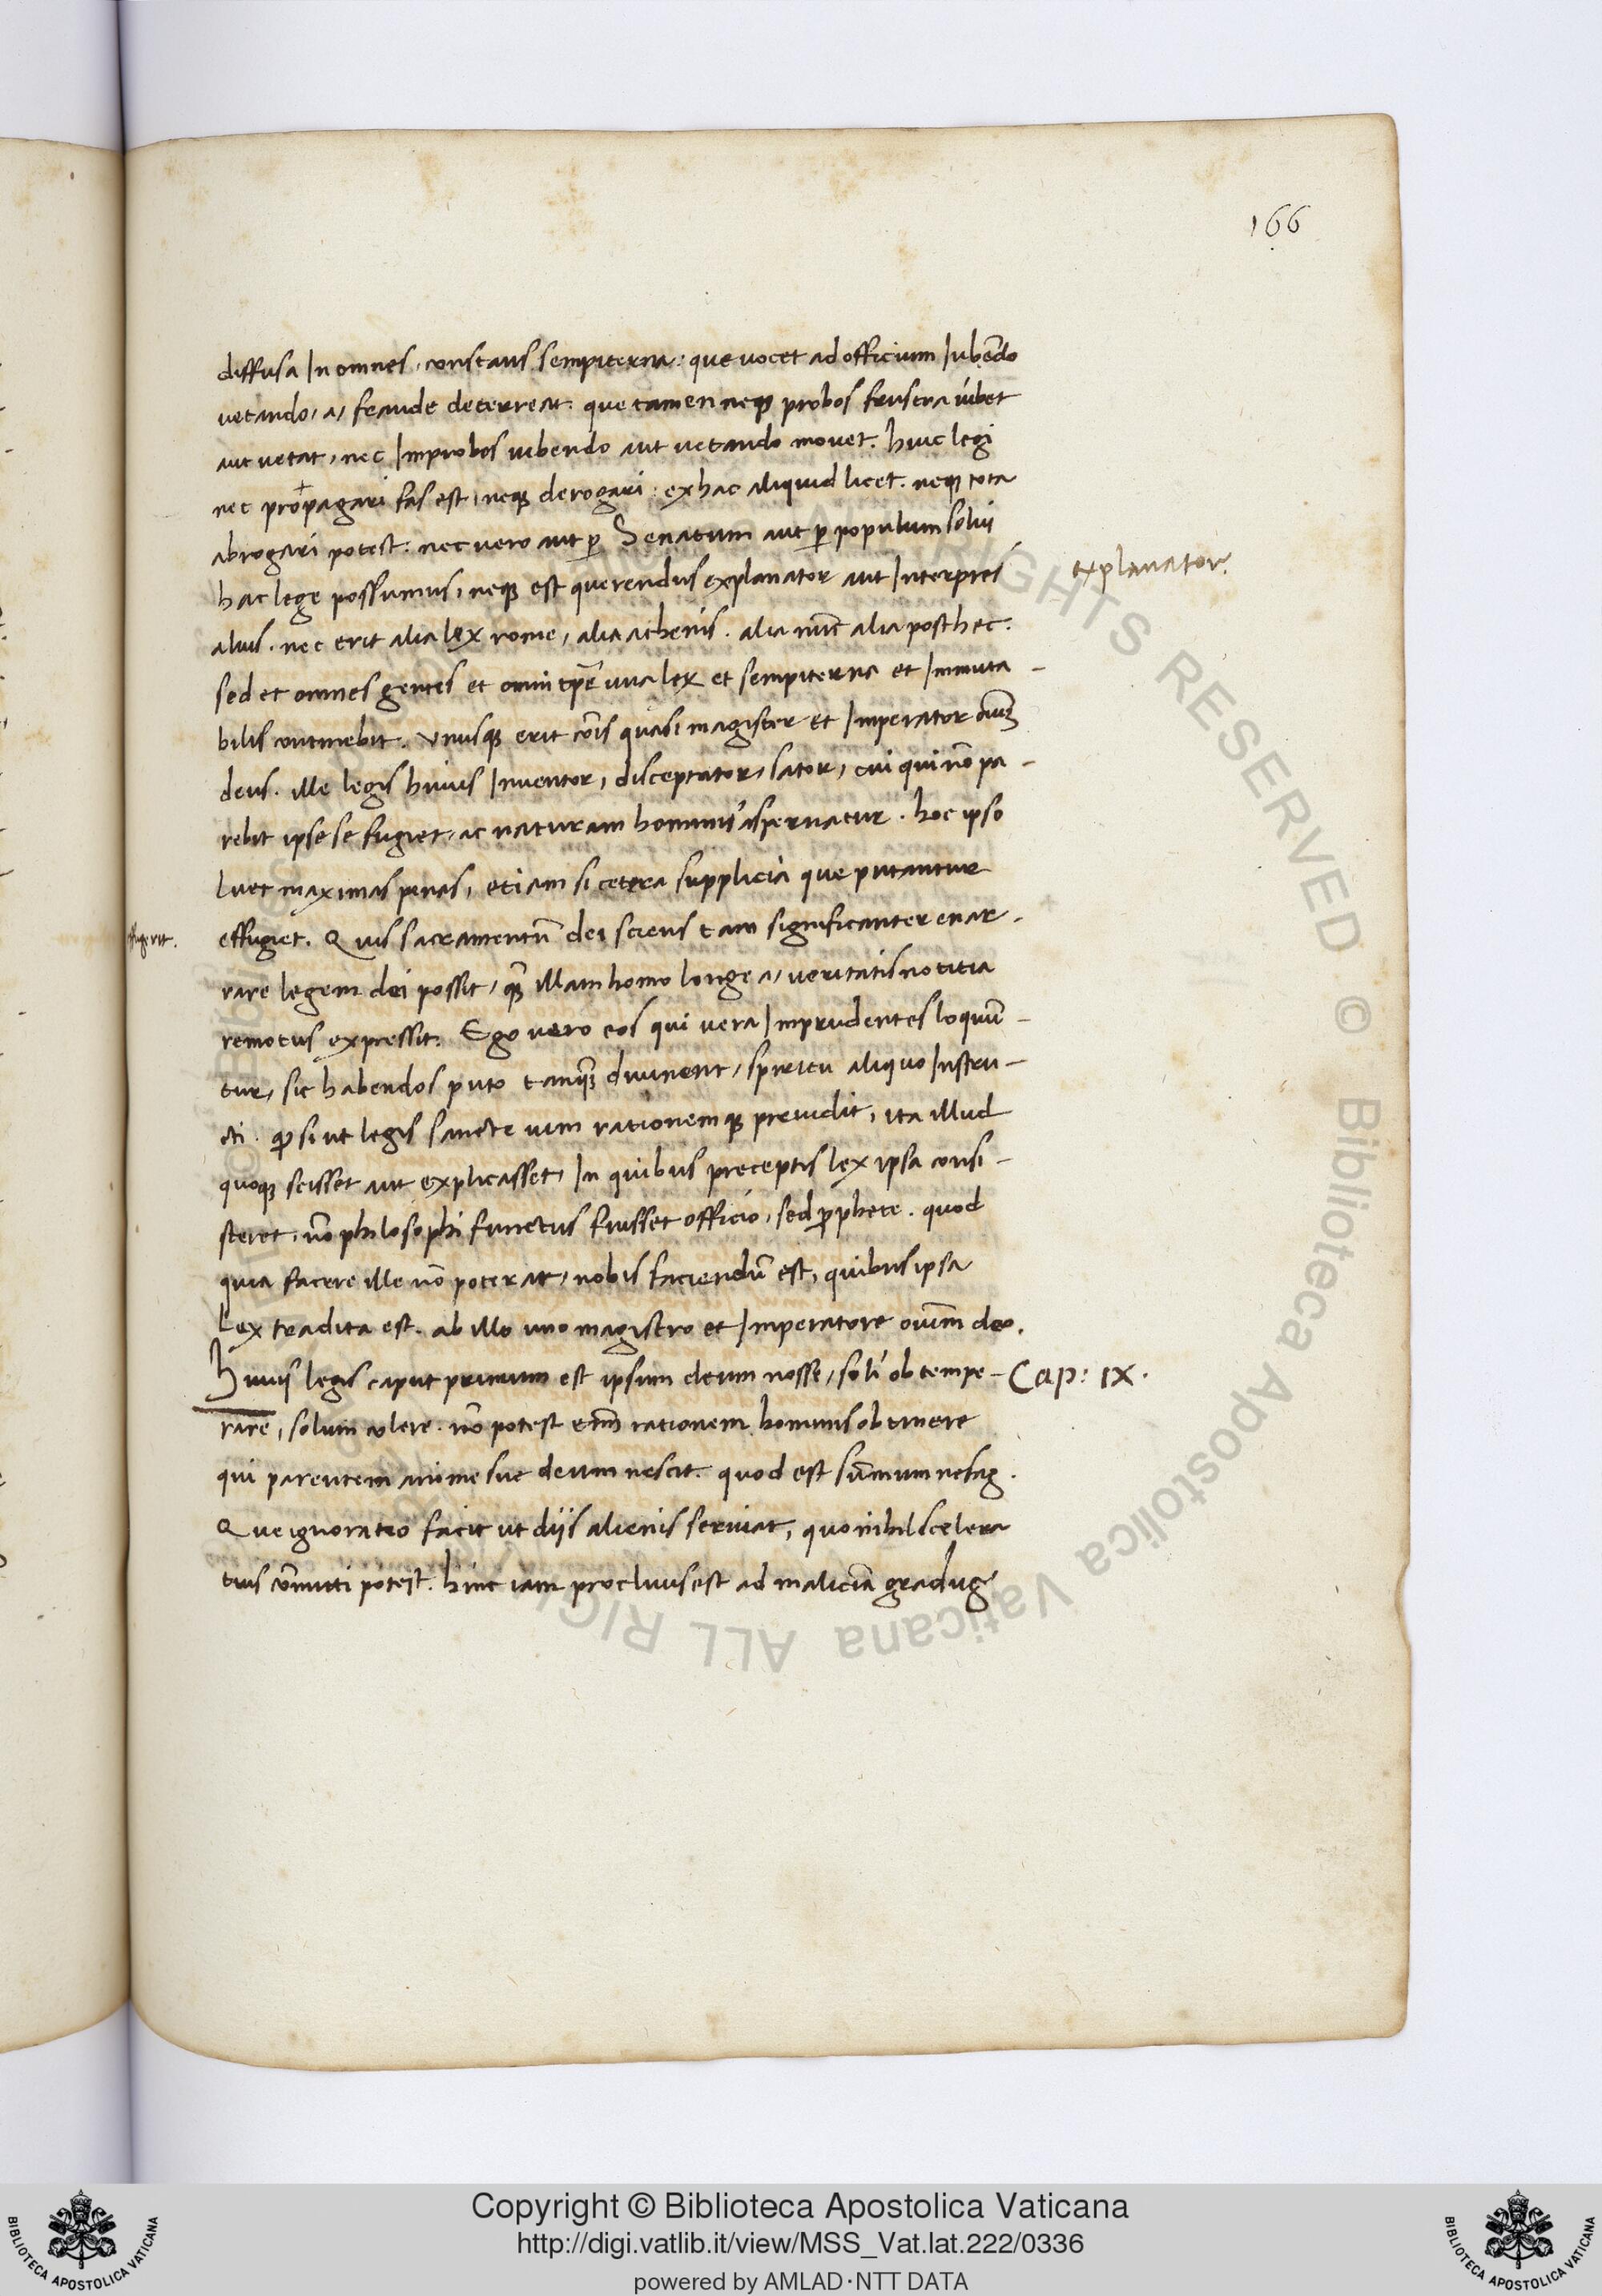 166
diffusa In omnes, constans sempiterna: que vocet ad officium Iubẽdo
vetando, a, fraude deterreat. que tamen neqꝫ probos frustra iubet
aut vetat, nec Improbos iubendo aut vetando movet. huic legi
nec propagari fas est, neqꝫ derogari: ex hac aliquid licet. neqꝫ tota
abrogari potest. nec vero aut ꝑ Senatum aut ꝑ populum solui
hac lege possumus, neqꝫ est querendus explanator aut Interpres
explanator.
alius. nec erit alia lex rome, alia athenis. alia nũc alia posthec.
sed et omnes gentes et omni tp̃e una lex et sempiterna et Immuta-
bilis continebit. Vnusqꝫ erit cõis quasi magister et Imperator oĩuꝫ
deus. ille legis huius Inventor, disceptator, lator, cui qui nõ pa-
rebit ipse se fugiet, ac naturam hominis aspernatur. hoc ipso
luet maximas penas, etiam si cetera supplicia que putantur
effugerit.
effugiet. Quis sacramentũ dei sciens tam significanter enar-
rare legem dei possit, qꝫ̃ illam homo longe a, veritatis notitia
remotus expressit. Ego vero eos qui vera Imprudentes loquũ-
tur, sic habendos puto tanqꝫ̃ divinent, spiritu aliquo Instru-
cti. qꝫ si ut legis sancte vim rationemqꝫ previdit, ita illud
quoqꝫ scisset aut explicasset, In quibus preceptis lex ipsa consi-
steret, nõ philosophi functus fuisset officio, sed ꝓphete. quod
quia facere ille nõ poterat, nobis faciendũ est, quibus ipsa
Lex tradita est. ab illo uno magistro et Imperatore oĩum deo.
Huius legis caput primum est ipsum deum nosse, soli obtempe-
Cap: IX.
rare, solum colere. nõ potest enĩ rationem hominis obtinere
qui parentem anime sue deum nescit. quod est sũmum nefas.
Que ignoratio facit ut diis alienis serviat, quo nihil scelera
tius cõmitti potest. hinc iam proclivus est ad maliciã gradus
Copyright © Biblioteca Apostolica Vaticana
http://digi.vatlib.it/view/MSS_Vat.lat.222/0336
powered by AMLAD·NTT DATA